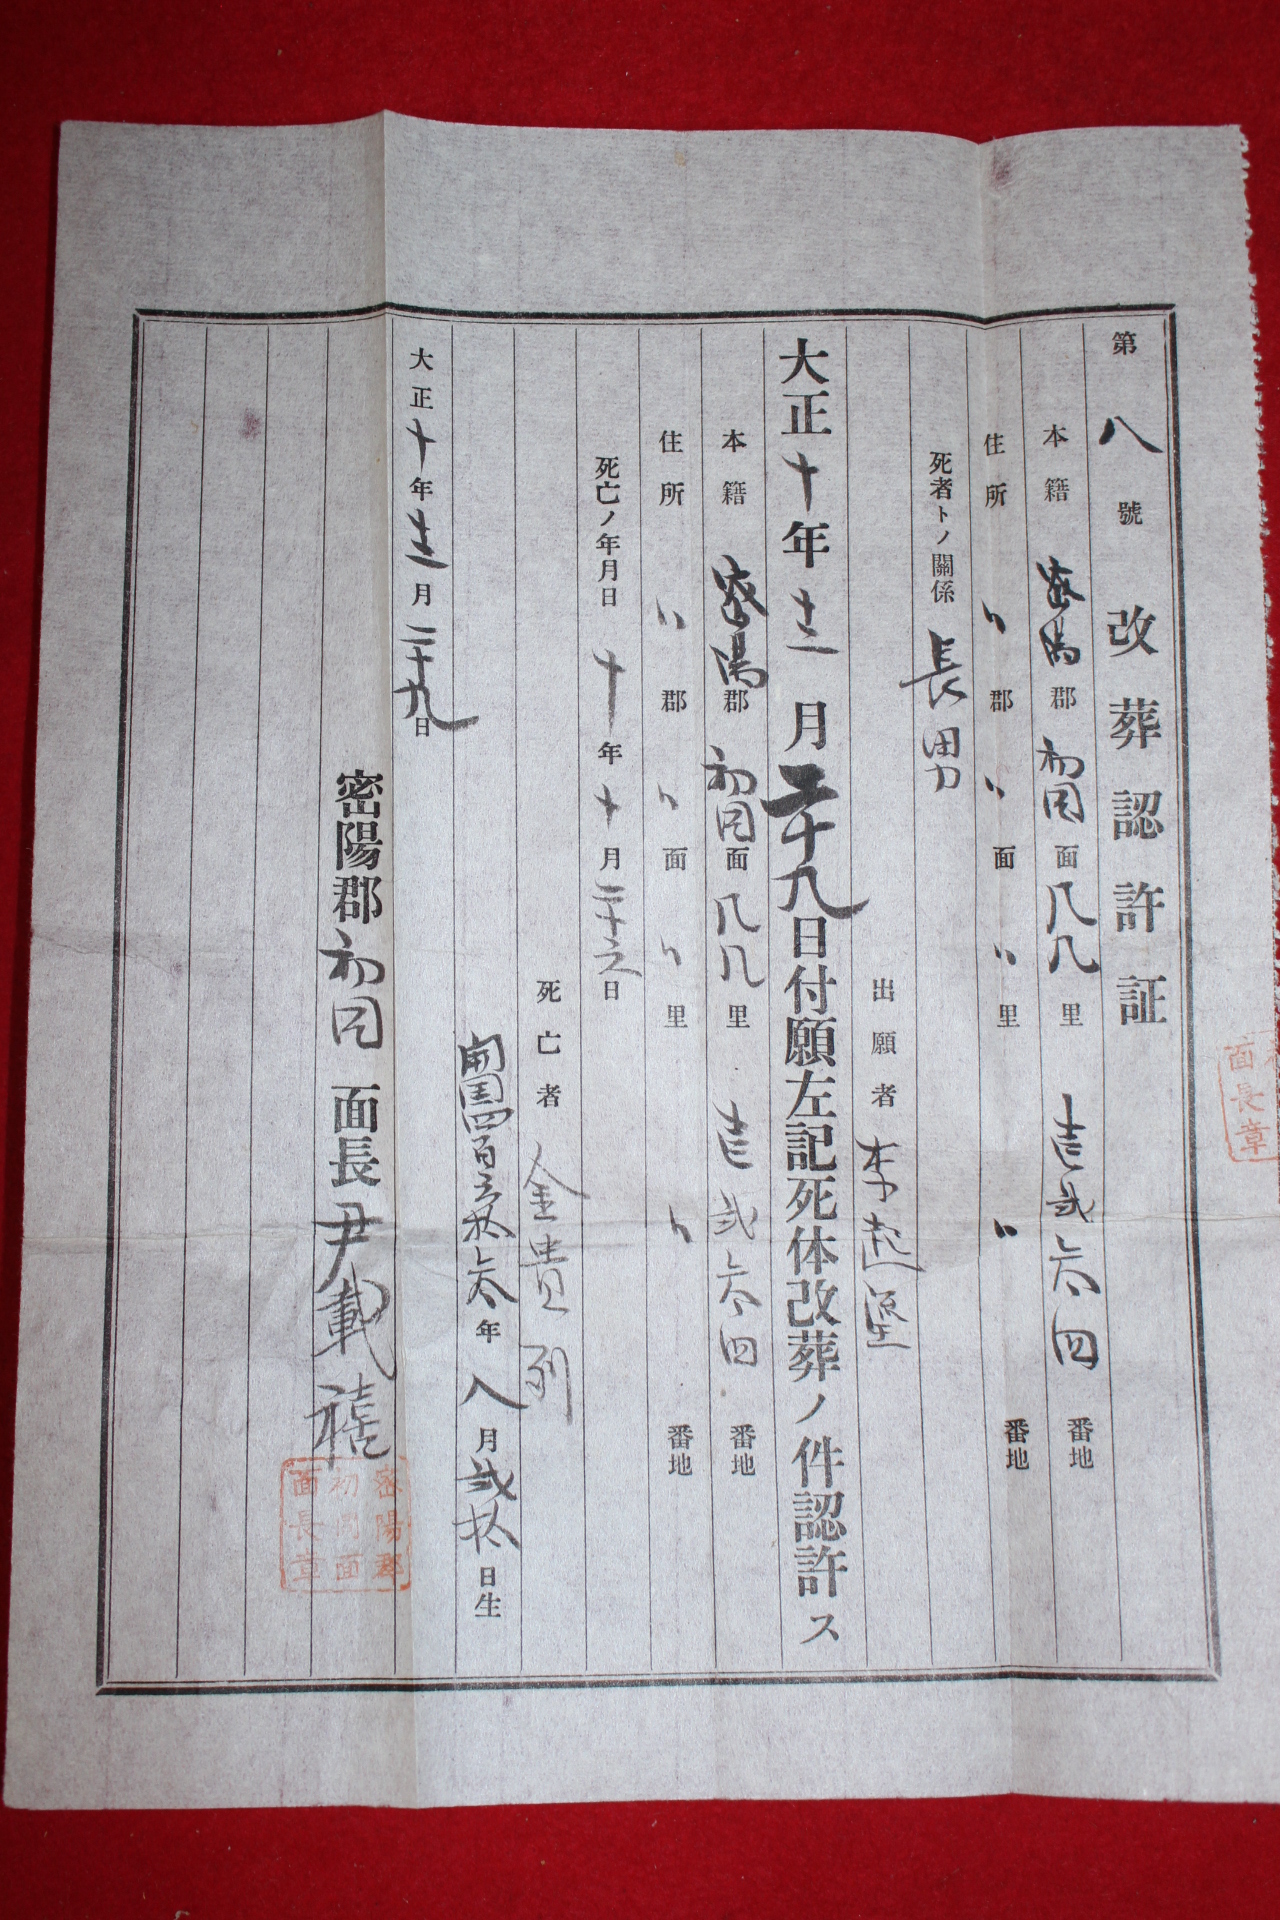 第八號 改葬認許証
本籍 密陽郡初同面凡凡里壱弐六四番地
住所 〃郡〃面〃里〃番地
死者トノ關係 長男
出願者 李起
大正十年十二月二十九日付願左記死体改葬ノ件認許ス
本籍 密陽郡初同面凡凡里壱弐六四番地
住所 〃郡〃面〃里〃番地
死亡ノ年月日 十年十月二十六日
死亡者 金貴列
開国四百六拾六年八月弐拾日生
大正十年十二月二十九日
密陽郡初同面長尹載禧
密陽郡
初同面
面長章
面長章